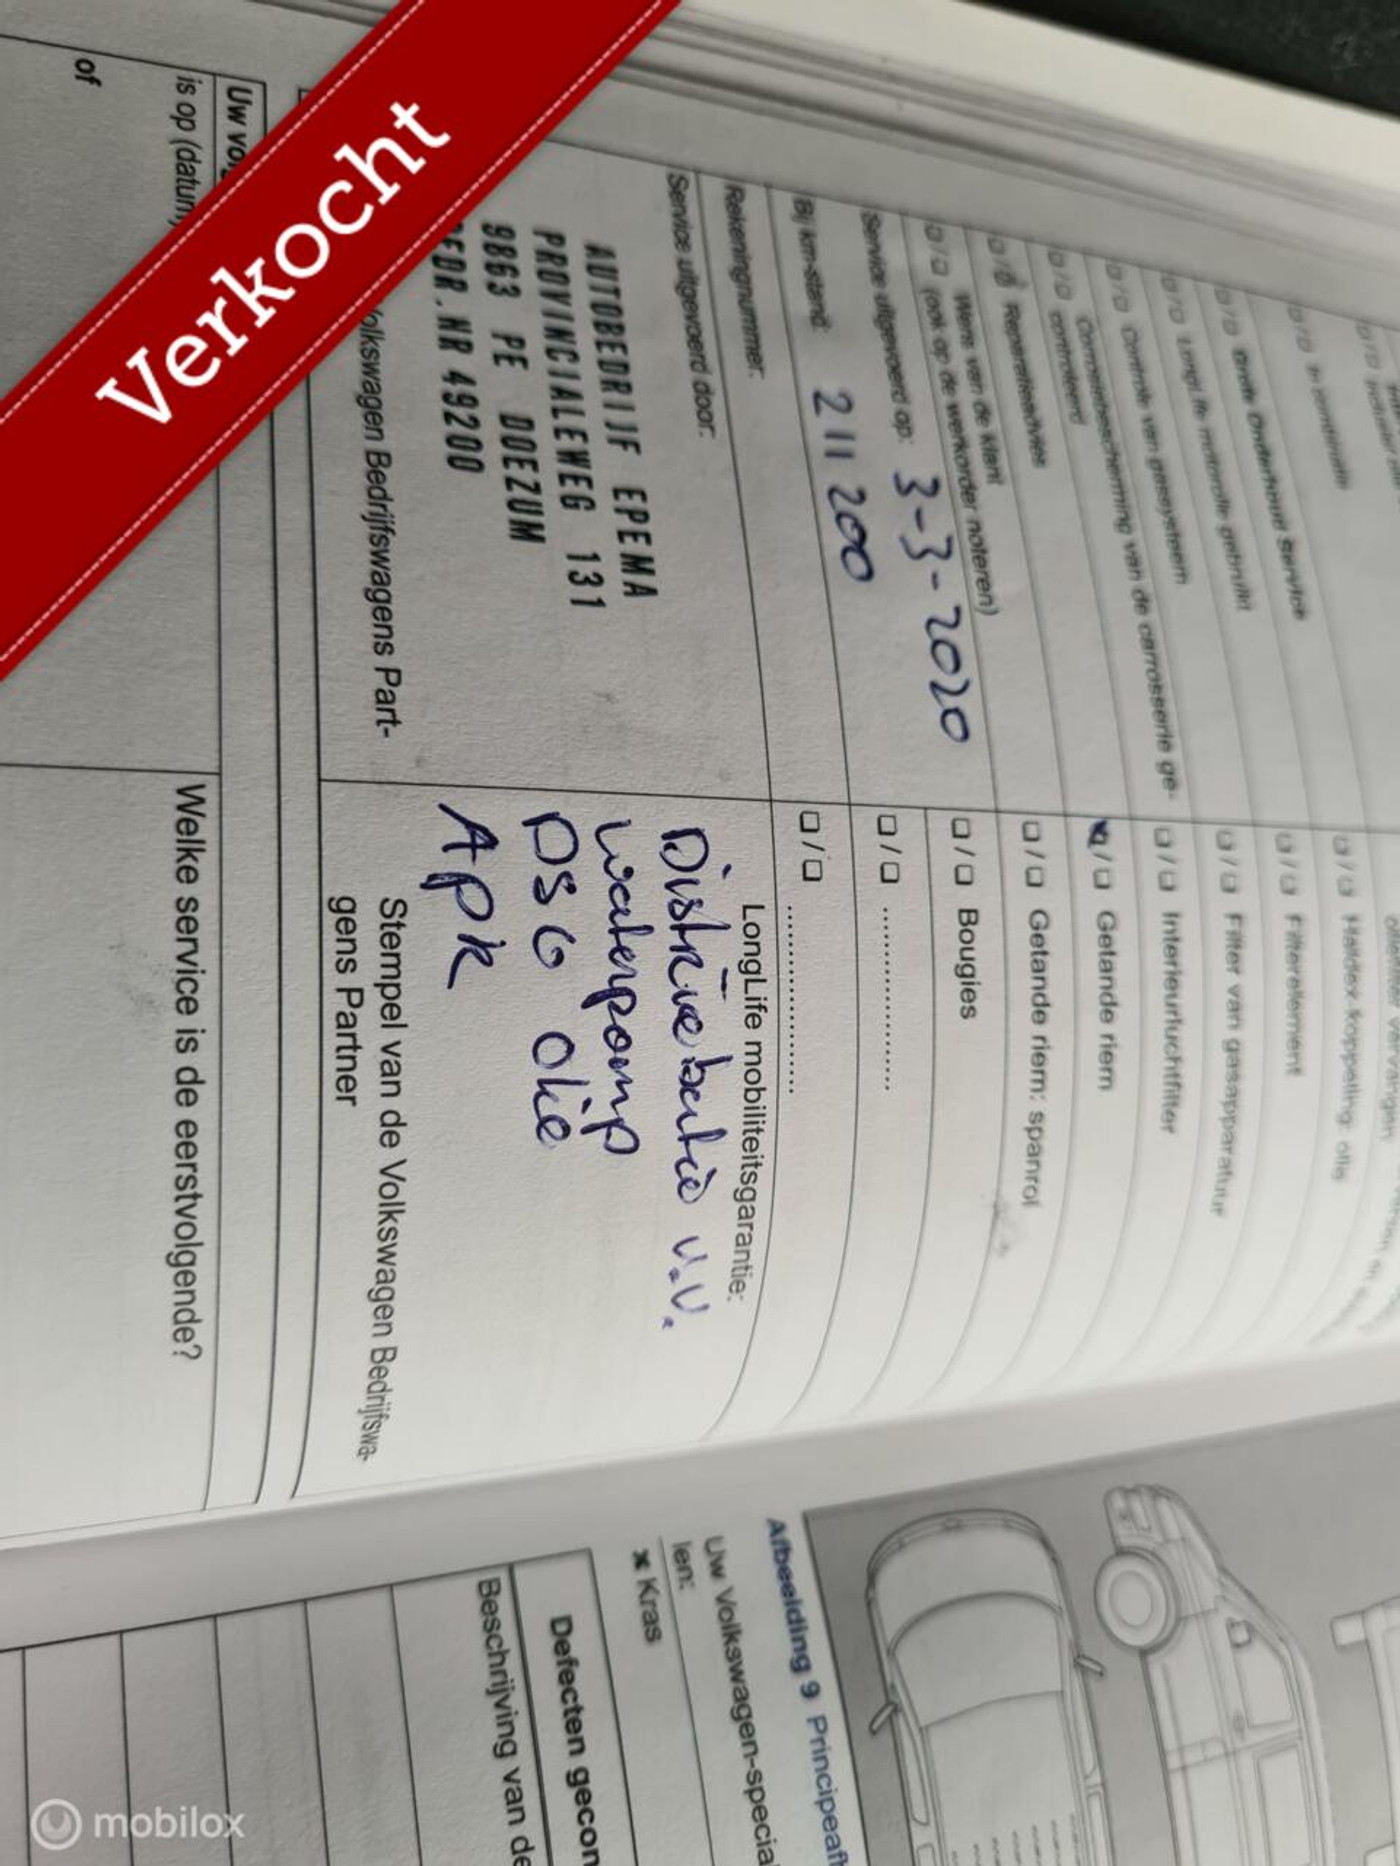 Verkocht
In combinatie
Grote Onderhoud Service
LongLife motorolie gebruikt
Controle van gassysteem
Corrosiebescherming van de carrosserie ge-
controleerd
Reparatieadvies
Wens van de klant
(ook op de werkorder noteren)
Service uitgevoerd op: 3-3-2020
Bij km-stand: 211 200
Rekeningnummer:
Service uitgevoerd door:
AUTOBEDRIJF EPEMA
PROVINCIALEWEG 131
9863 PE DOEZUM
EDR.NR 49200
olkswagen Bedrijfswagens Part-
Haldex-koppeling: olie
Filterelement
Filter van gasapparatuur
Interieurluchtfilter
Getande riem
Getande riem: spanrol
Bougies
LongLife mobiliteitsgarantie:
Distributie V.V.
waterpomp
DSG olie
APK
Stempel van de Volkswagen Bedrijfswa-
gens Partner
Uw vol
is op (datum)
of
Welke service is de eerstvolgende?
Afbeelding 9 Principeaf
Uw Volkswagen-special
len:
x Kras
Defecten gecon
Beschrijving van de
mobilox